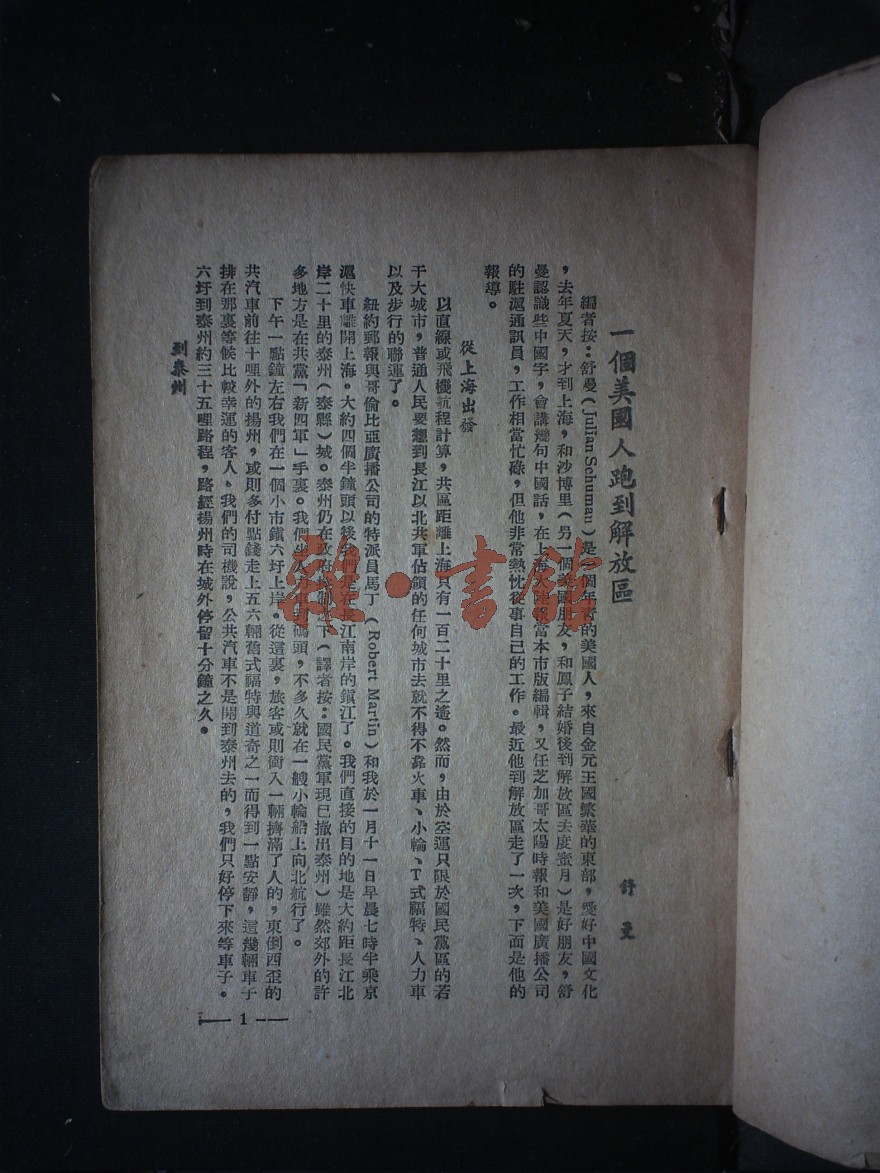 一個美國人跑到解放區
舒曼
編者按：舒曼(Julian Schuman)是一個年青的美國人，來自金元王國繁華的東部，愛好中國文化
，去年夏天，才到上海，和沙博里(另一個美國朋友，和鳳子結婚後到解放區去度蜜月)是好朋友，舒
曼認識些中國字，會講幾句中國話，在上海大陸報當本市版編輯，又任芝加哥太陽時報和美國廣播公司
的駐滬通訊員，工作相當忙碌，但他非常熱忱從事自己的工作。最近他到解放區走了一次，下面是他的
報導。
從上海出發
以直線或飛機航程計算，共區距離上海只有一百二十里之遙。然而，由於空運只限於國民黨區的若
干大城市，普通人民要想到長江以北共軍佔領的任何城市去就不得不靠火車、小輪、T式福特、人力車
以及步行的聯運了。
紐約郵報與哥倫比亞廣播公司的特派員馬丁(Robert Martin)和我於一月十一日早晨七時半乘京
滬快車離開上海。大約四個半鐘頭以後我們是在長江南岸的鎮江了。我們直接的目的地是大約距長江北
岸二十里的泰州(泰縣)城。泰州仍在政府控制之下(譯者按：國民黨軍現已撤出泰州)雖然郊外的許
多地方是在共黨「新四軍」手裏。我們坐人力車到碼頭，不多久就在一艘小輪船上向北航行了。
下午一點鐘左右我們在一個小市鎮六圩上岸。從這裏，旅客或則衝入一輛擠滿了人的，東倒西歪的
共汽車前往十哩外的揚州，或則多付點錢走上五六輛舊式福特與道奇之一而得到一點安靜，這幾輛車子
排在那裏等候比較幸運的客人。我們的司機說，公共汽車不是開到泰州去的，我們只好停下來等車子。
六圩到泰州約三十五哩路程，路經揚州時在城外停留十分鐘之久。
到泰州
— 1 —
雜·書館